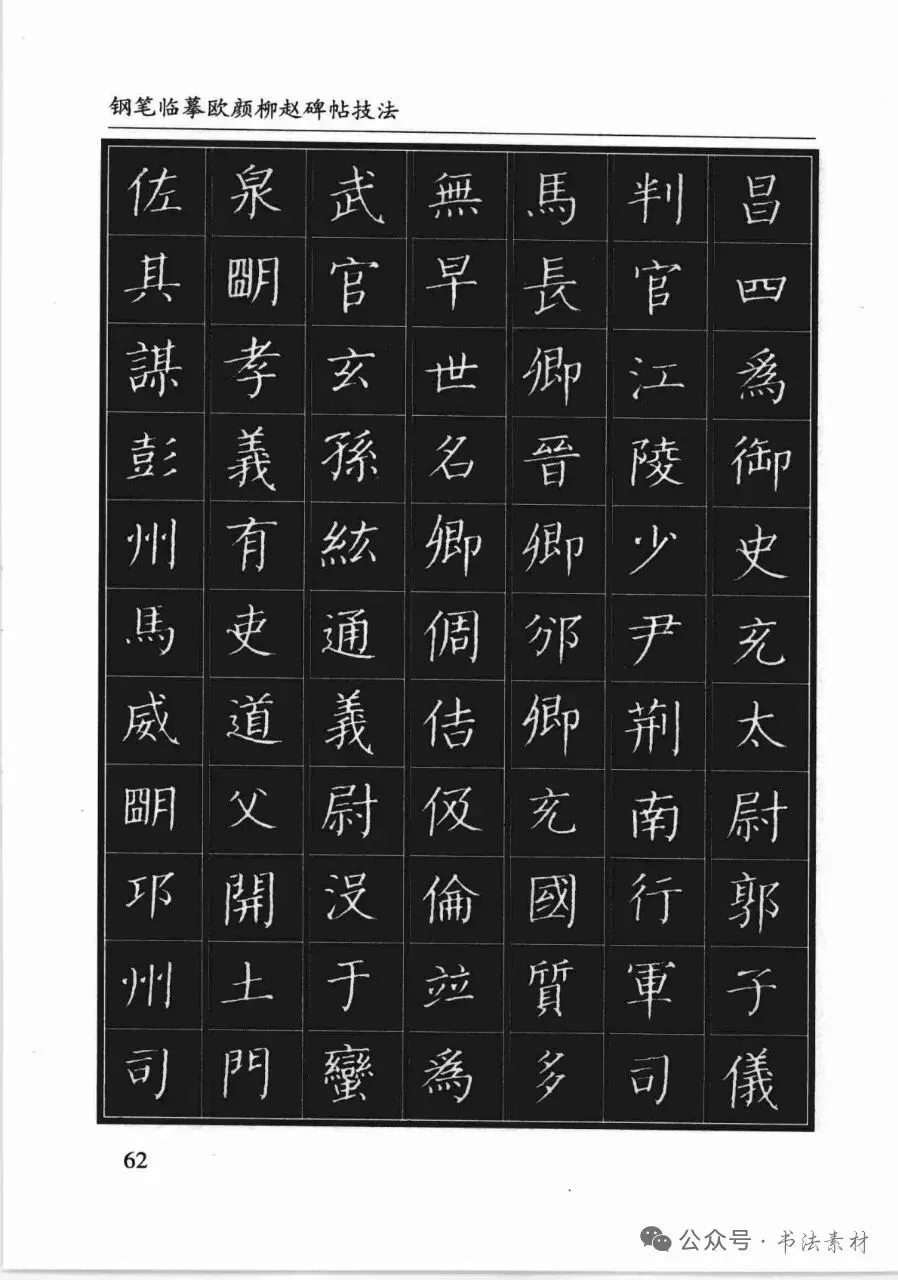 钢笔临摹欧颜柳赵碑帖技法
昌四爲御史充太尉郭子儀
判官江陵少尹荆南行軍司
馬長卿晉卿邠卿充國質多
無早世名卿倜佶伋倫竝爲
武官玄孫紘通義尉没于蠻
泉朙孝義有吏道父開土門
佐其謀彭州馬威朙邛州司
62
公众号·书法素材